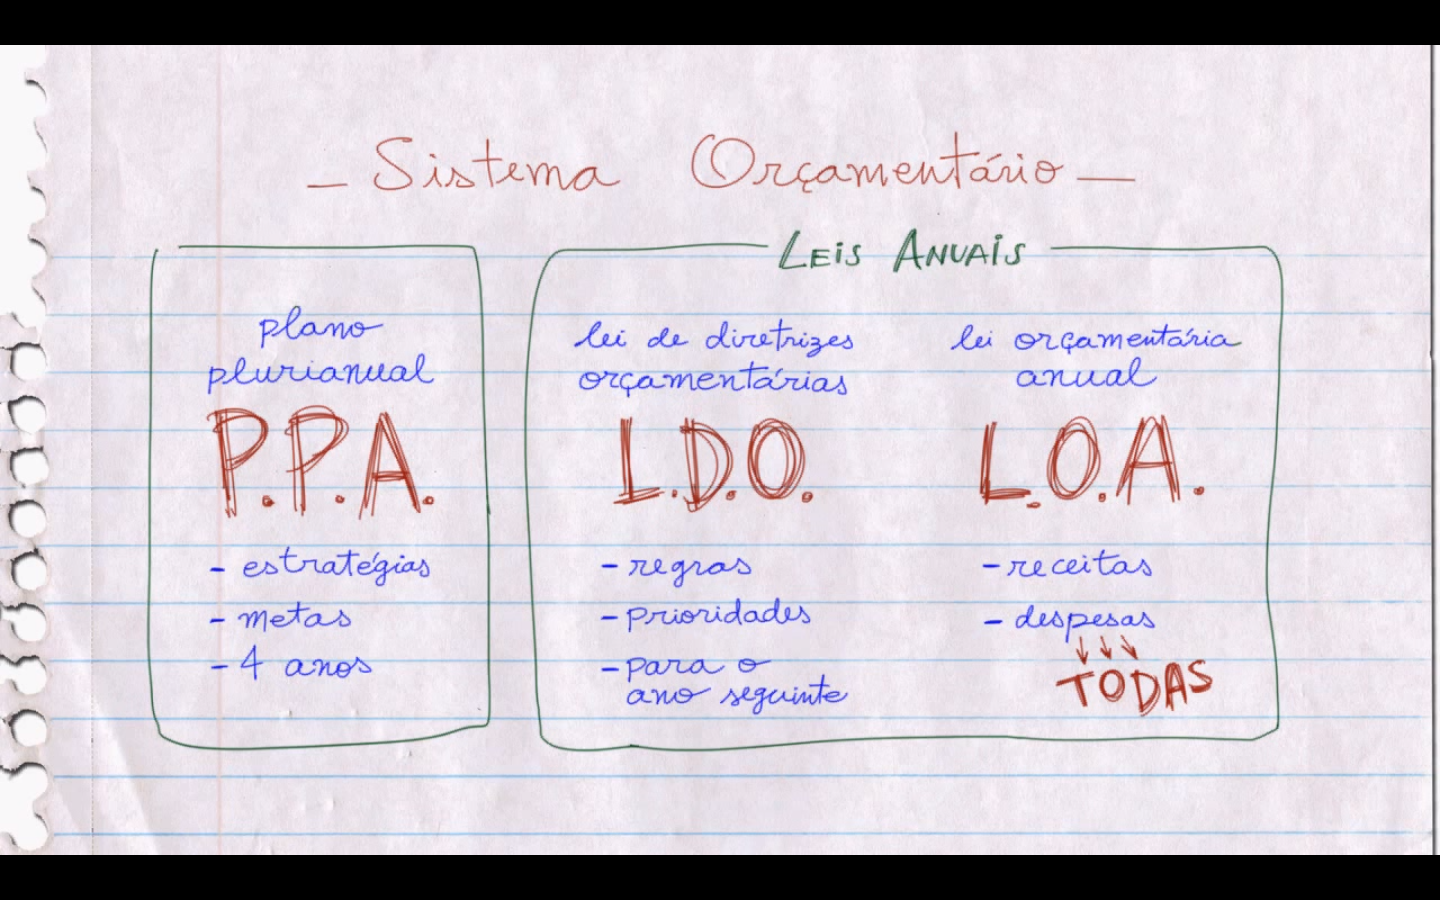 — Sistema Orçamentário —
LEIS ANUAIS
plano
plurianual
P.P.A.
- estratégias
- metas
- 4 anos
lei de diretrizes
orçamentárias
L.D.O.
- regras
- prioridades
- para o
ano seguinte
lei orçamentária
anual
L.O.A.
- receitas
- despesas
TODAS